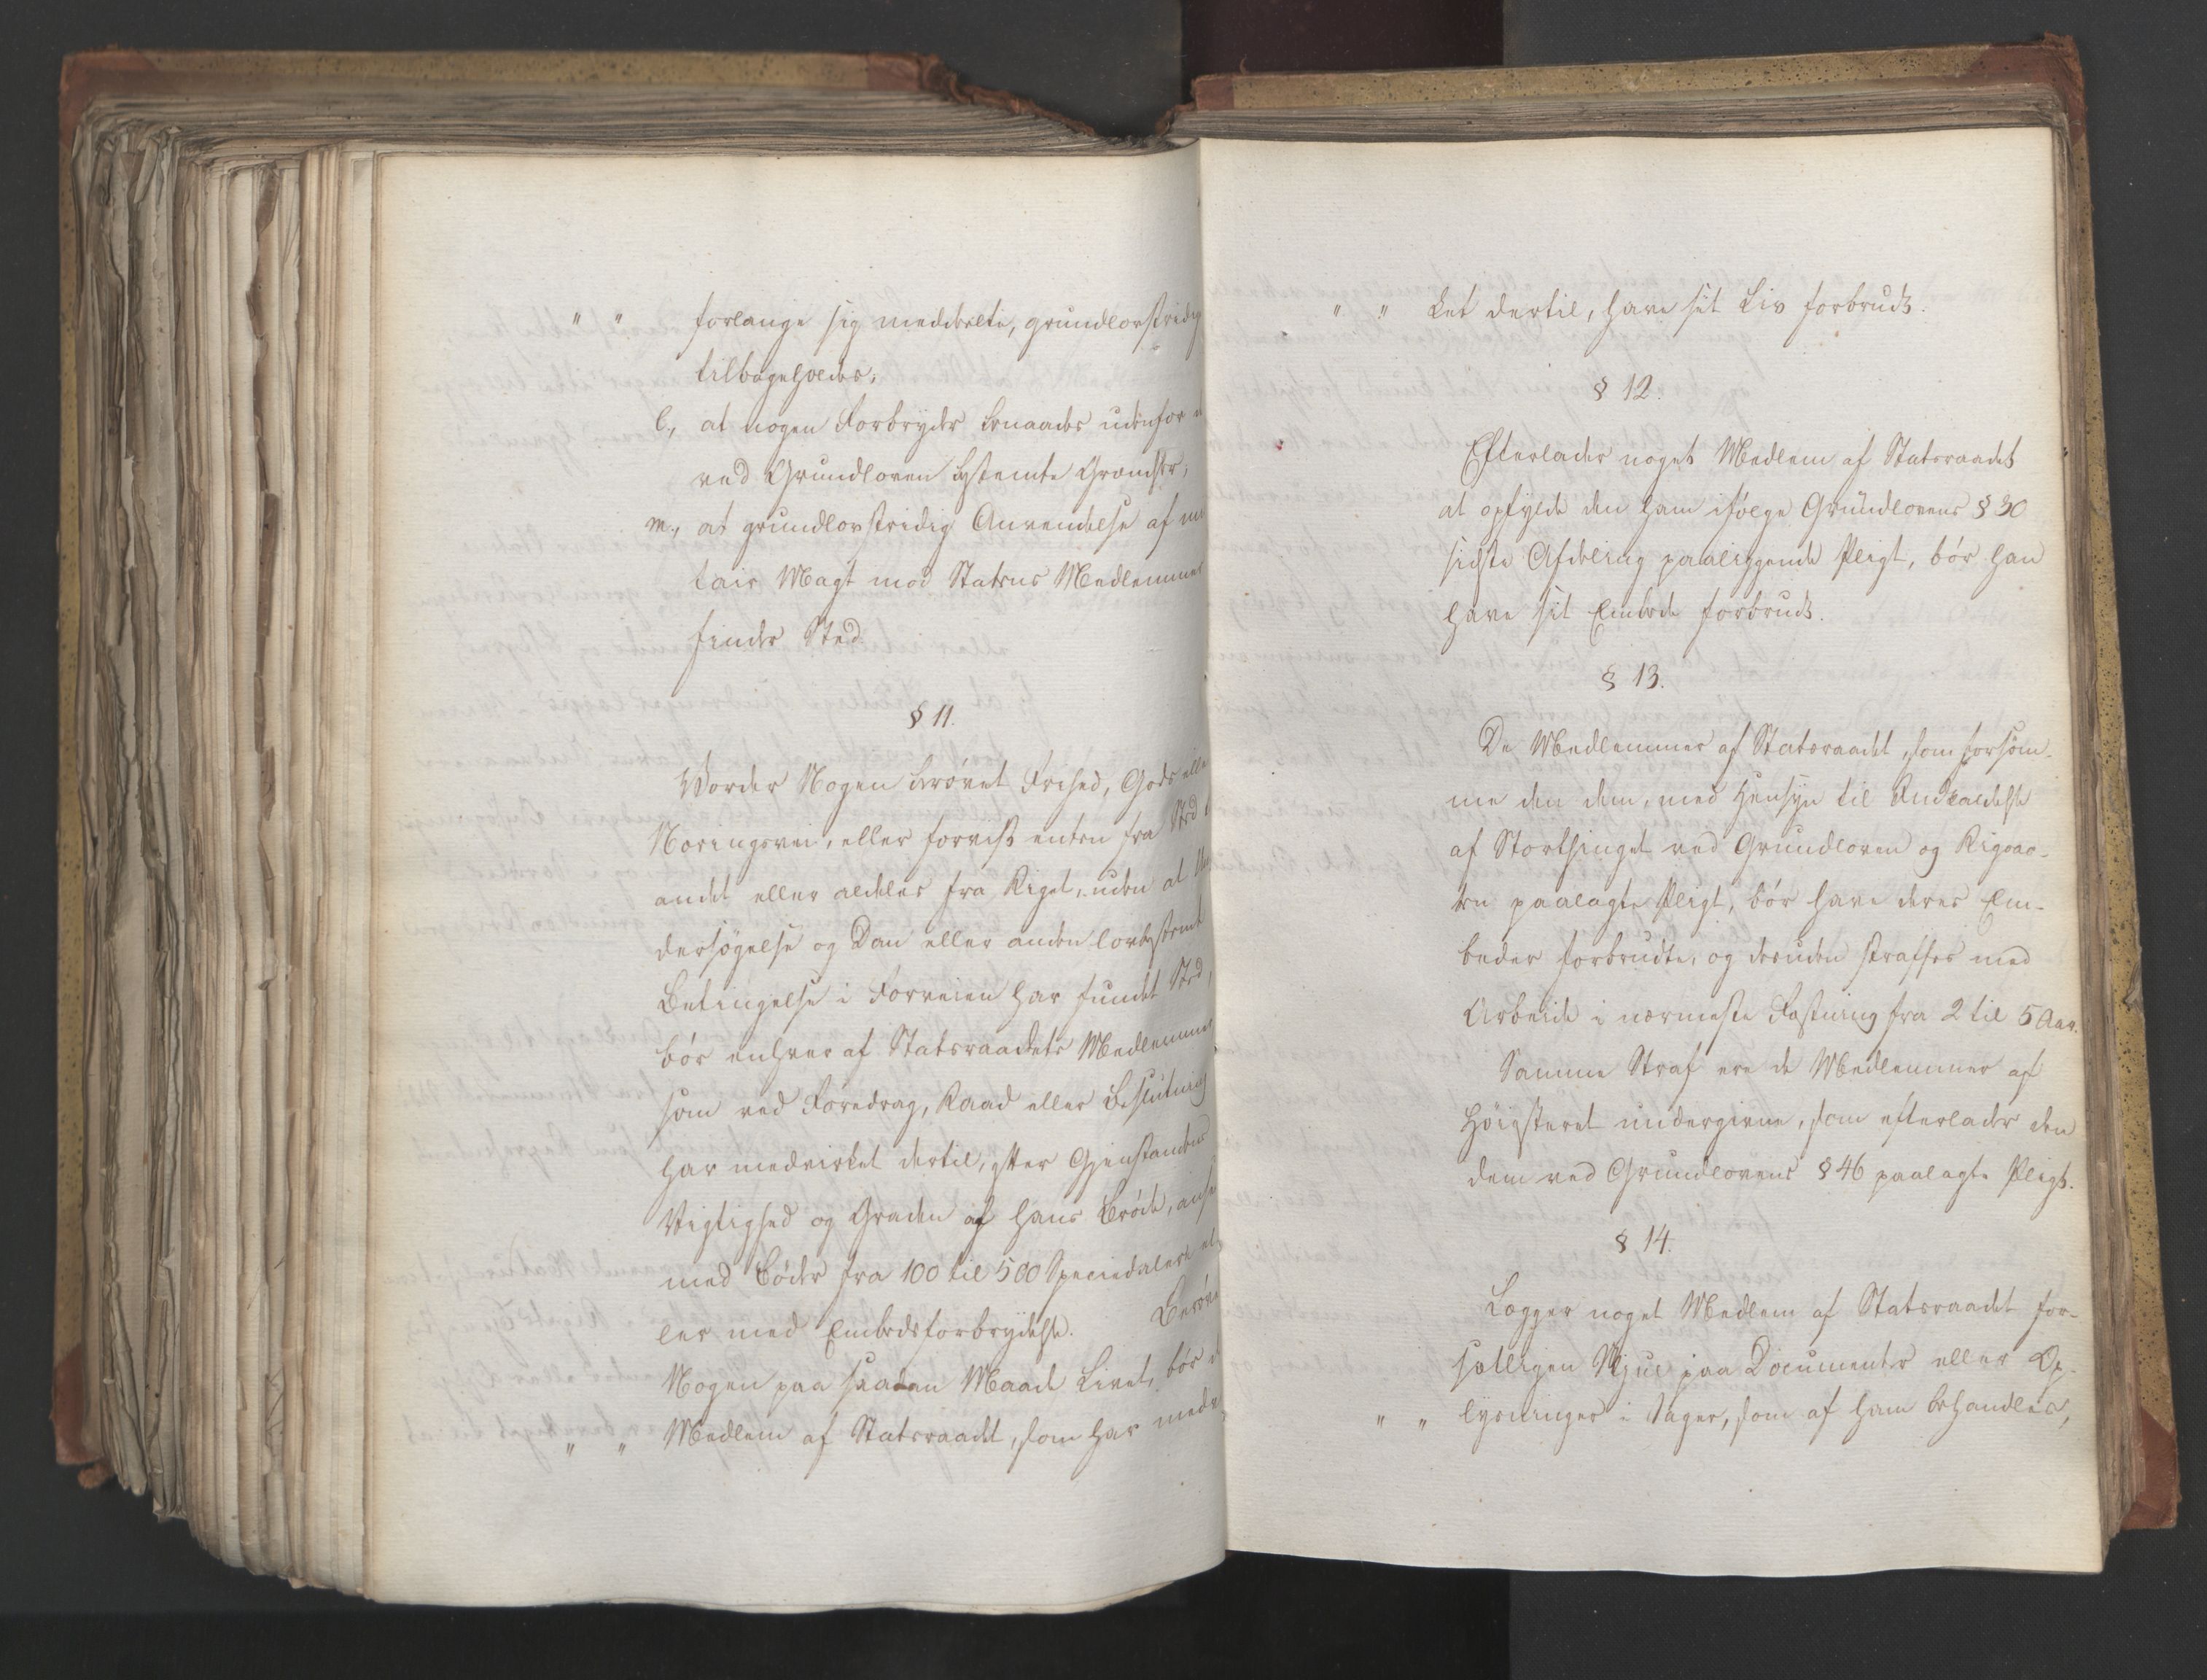 " " forlange sig meddeelte, grundlovstridig
tilbageholdes;
l., at nogen Forbryder benaades udenfor d
ved Grundloven bestemte Grændser;
m., at grundlovstridig Anvendelse af mi
tair Magt mod Statens Medlemmer
finder Sted.
§ 11.
Vorder Nogen berøvet Frihed, Gods elle
Næringsvei, eller forvist enten fra Sted t
andet eller aldeles fra Riget, uden at Un
dersøgelse og Dom eller anden lovbestemt
Betingelse i Forveien har fundet Sted,
bør enhver af Statsraadets Medlemmer
som ved Foredrag, Raad eller Beslutning
har medvirket dertil, efter Gjenstandens
Vigtighed og Graden af hans Brøde, anse
med Bøder fra 100 til 500 Speciedaler el
ler med Embedsforbrydelse. Berøve
Nogen paa saadan Maade Livet, bør d
" " Medlem af Statsraadet, som har medv
" " ket dertil, have sit Liv forbrudt.
§ 12.
Efterlader noget Medlem af Statsraadet
at opfylde den ham ifølge Grundlovens § 30
sidste Afdeling paaliggende Pligt, bør han
have sit Embede forbrudt.
§ 13.
De Medlemmer af Statsraadet, som forsøm-
me den dem, med Hensyn til Indkaldelse
af Storthinget ved Grundloven og Rigsac-
ten paalagte Pligt, bør have deres Em-
beder forbrudte, og desuden straffes med
Arbeide i nærmeste Fæstning fra 2 til 5 Aar.
Samme Straf ere de Medlemmer af
Høiesteret undergivne, som efterlader den
dem ved Grundlovens § 46 paalagte Pligt.
§ 14.
Lægger noget Medlem af Statsraadet for-
sætligen Skjul paa Documenter eller Op-
" " lysninger i Sager, som af ham behandles,